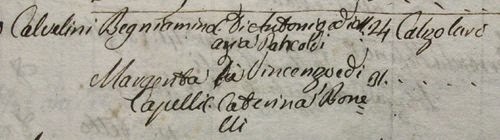 Calvelini Begniamino di Antonio e di 24 Calzolaro
Anna Pancoli
Margerita di Vincenzo e di 21
Capelli Caterina Bone=
lli